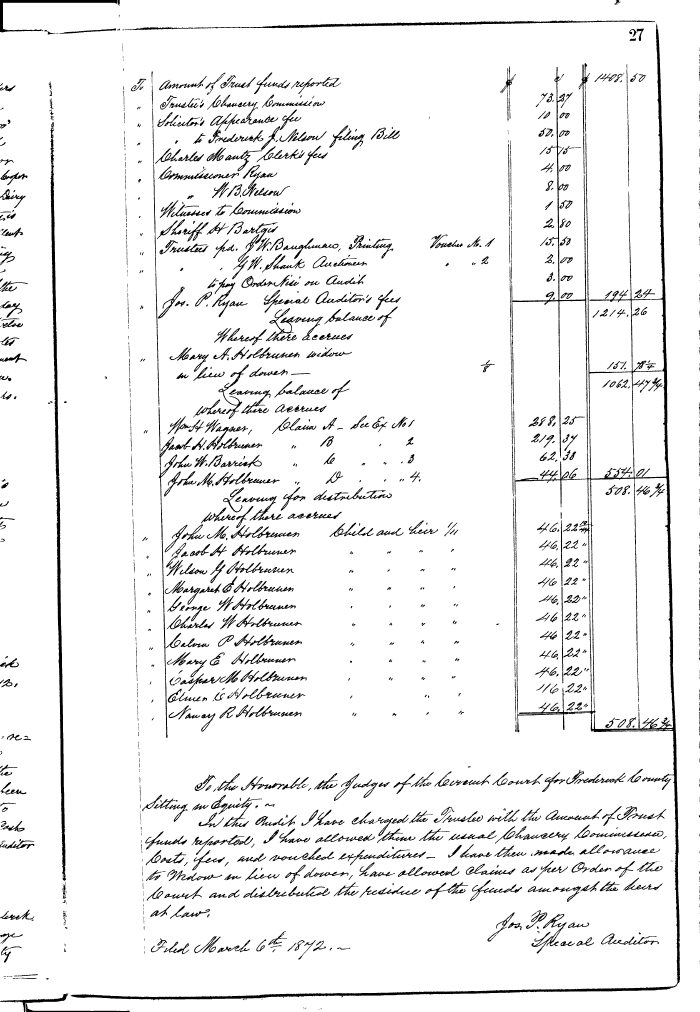 27
To Amount of Trust funds reported $ c $ 1408.50
" Trustee's Chancery Commission 73.27
" Solicitor's Appearance fee 10.00
" " to Frederick J. Nelson filing Bill 50.00
" Charles Mantz Clerk's fees 15.15
" Commissioner Ryan 4.00
" " W. B. Nelson 8.00
" Witnesses to Commission 1.50
" Sheriff H Bartgis 2.80
" Trustees pd. J. W. Baughman, Printing Voucher No. 1 15.50
" " " G. W. Shank Auctioneer " " 2 2.00
" to pay Order Nisi on Audit 3.00
" Jos. P. Ryan Special Auditor's fees 9.00 194.24
Leaving balance of 1214.26
Whereof there accrues
" Mary A. Holbruner widow
in lieu of dower — 1/8 151.78 1/4
Leaving balance of 1062.47 3/4
whereof there accrues
" Wm H Wagner, Claim A — See Ex No 1 288.25
Jacob H. Holbruner " B " " 2 219.37
John W. Barrick " C " " 3 62.38
John M. Holbruner " D " " 4. 44.06 554.01
Leaving for distribution 508.46 3/4
whereof there accrues
" John M. Holbrunner Child and heir 1/11 46.22
" Jacob H Holbrunner " " " " 46.22 "
" Wilson G Holbrunner " " " " 46.22 "
" Margaret E Holbrunner " " " " 46.22 "
" George W Holbrunner " " " " 46.22 "
" Charles W Holbrunner " " " " 46.22 "
" Calvin P Holbrunner " " " " 46.22 "
" Mary E Holbrunner " " " " 46.22 "
" Caspar M Holbrunner " " " " 46.22 "
" Elmer C Holbrunner " " " 46.22 "
" Nancy R Holbrunner " " " " 46.22 " 508.46 3/4
To the Honorable, the Judges of the Circuit Court for Frederick County
Sitting in Equity. ~
In this Audit I have charged the Trustee with the Amount of Trust
funds reported, I have allowed them the usual Chancery Commissions,
Costs, fees, and vouched expenditures — I have then made allowance
to Widow in lieu of dower, have allowed claims as per Order of the
Court and distributed the residue of the funds amongst the heirs
at law.
Jos. P. Ryan
Special Auditor
Filed March 6th 1872. ~